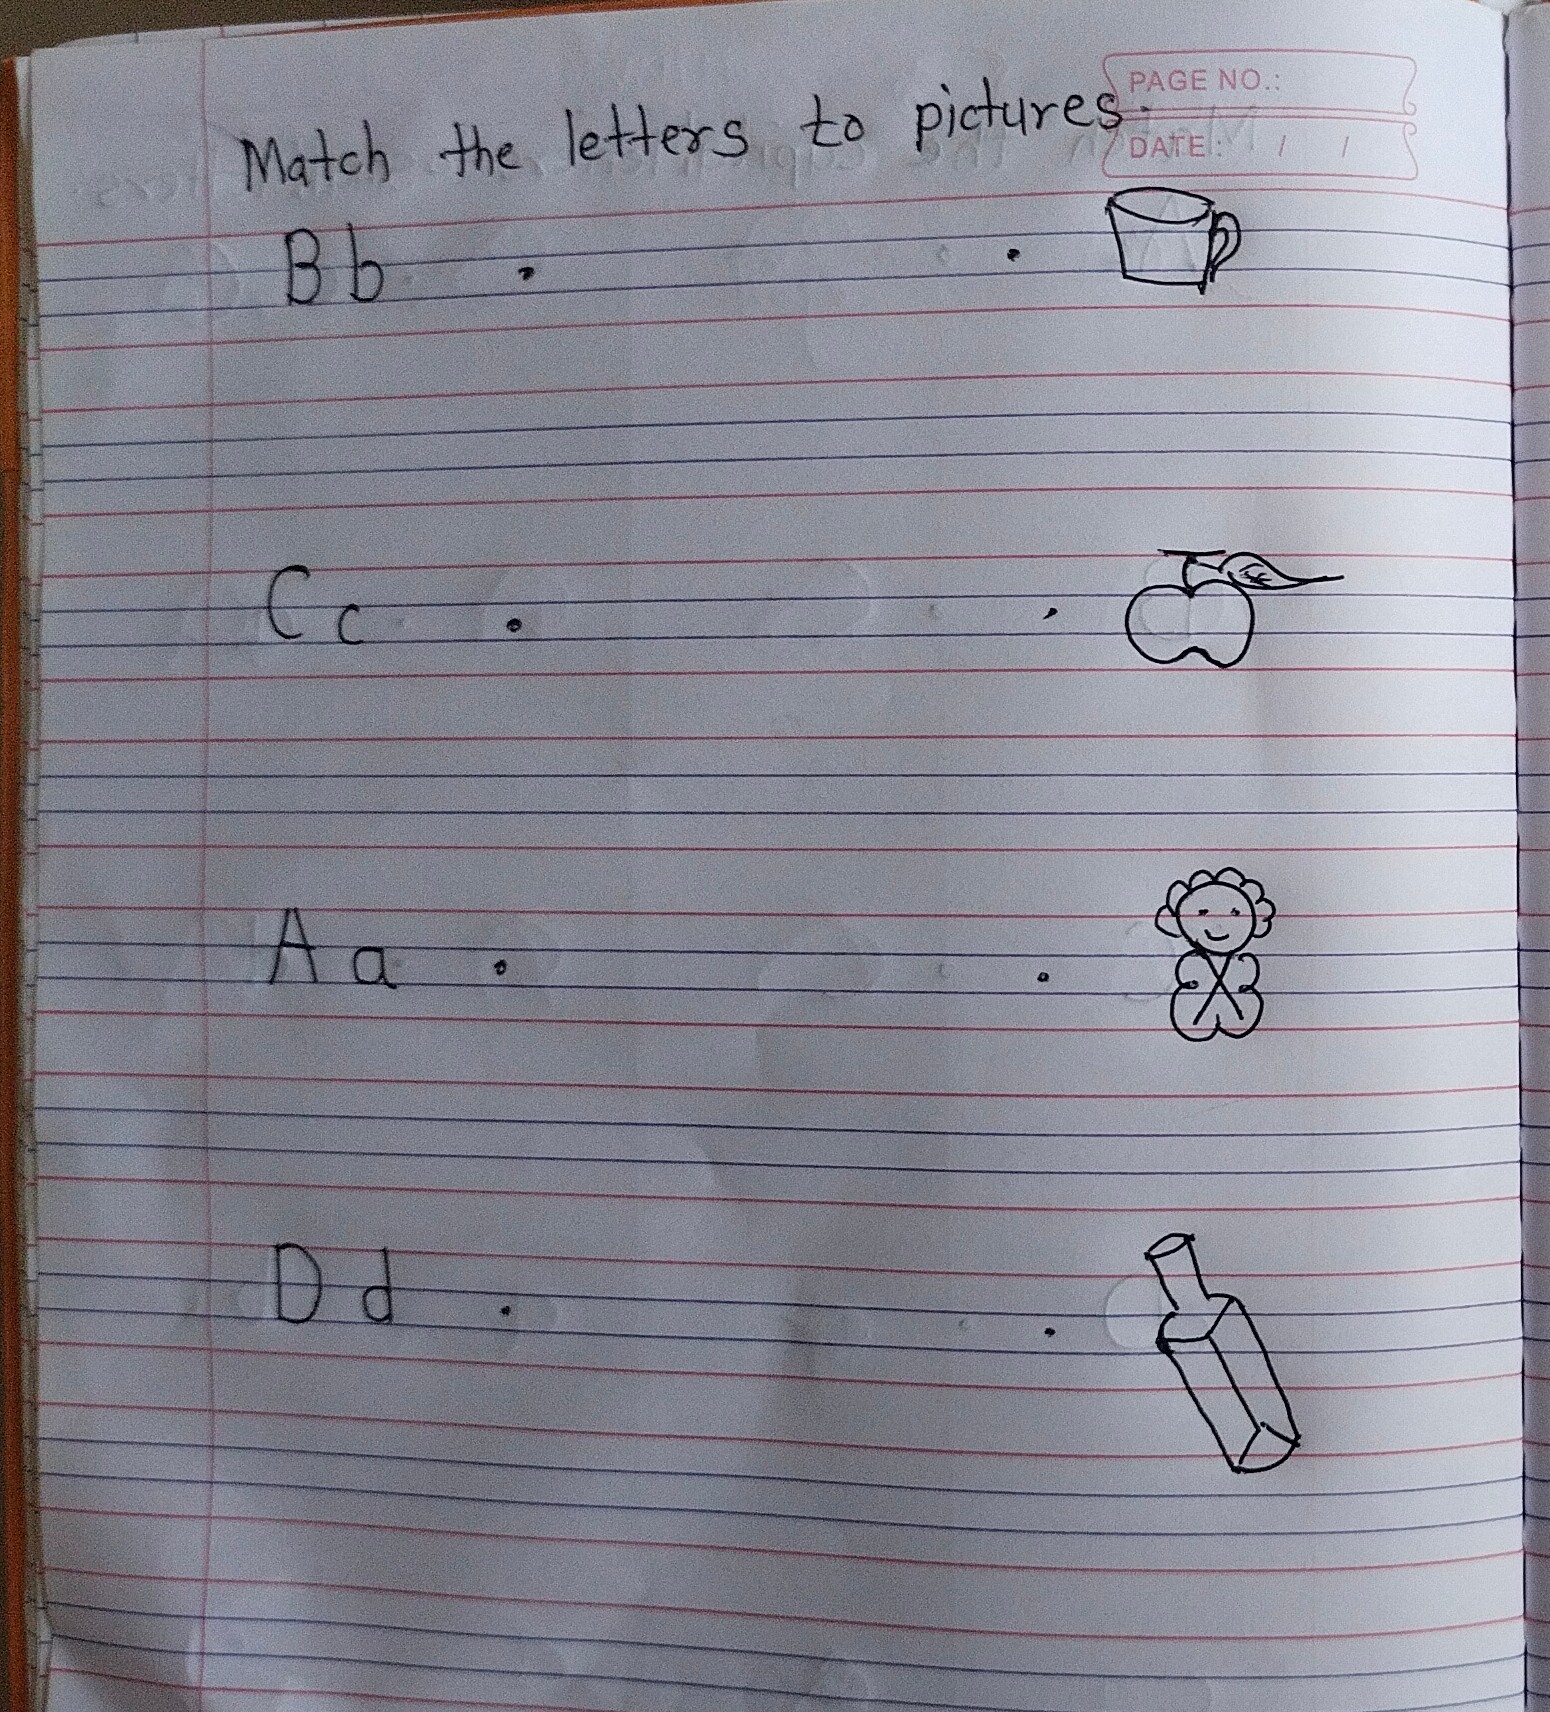 PAGE NO.:
Match the letters to pictures.
DATE: / /
Bb
Cc
Aa
Dd